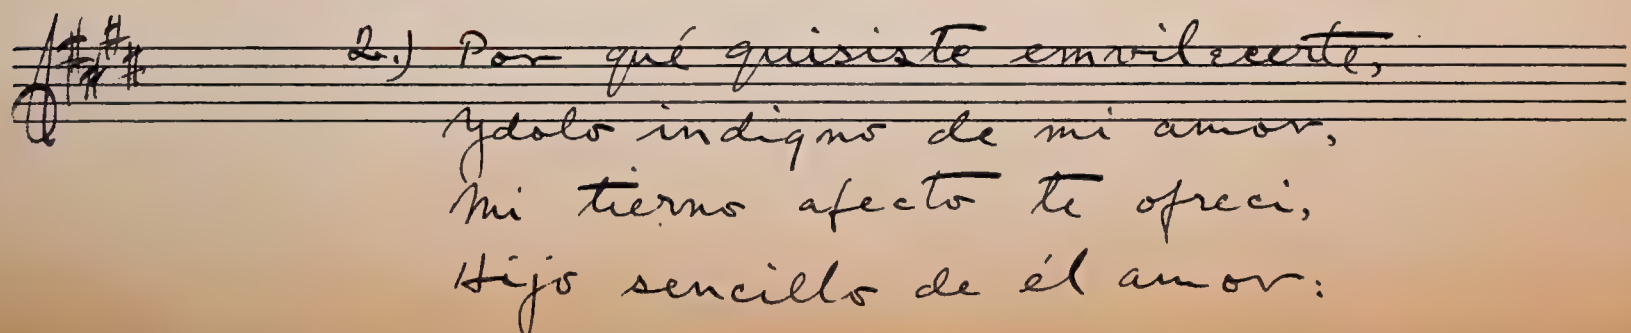 2.) Por qué quisiste emvilecerte,
Ydolo indigno de mi amor,
Mi tierno afecto te ofreci,
Hijo sencillo de él amor: